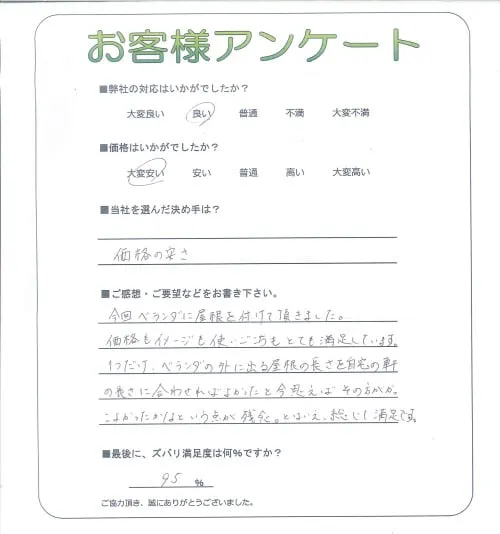 お客様アンケート
■弊社の対応はいかがでしたか？
大変良い 良い 普通 不満 大変不満
■価格はいかがでしたか？
大変安い 安い 普通 高い 大変高い
■当社を選んだ決め手は？
価格の安さ
■ご感想・ご要望などをお書き下さい。
今回ベランダに屋根を付けて頂きました。
価格もイメージも使いごこちもとても満足しています。
1つだけ、ベランダの外に出る屋根の長さを自宅の軒
の長さに合わせればよかったと今思えばその方がか。
こよかったかなという点が残念。とはいえ、総じて満足です。
■最後に、ズバリ満足度は何%ですか？
95 %
ご協力頂き、誠にありがとうございました。